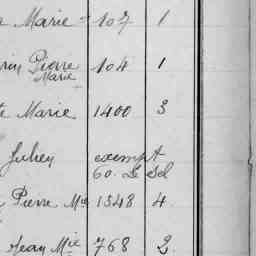 Marie 107 1
Pierre 104 1
Marie
Marie 1400 3
Julien exempt
60. Le Sol
Pierre Mie 1348 4
Jean Mie 768 2